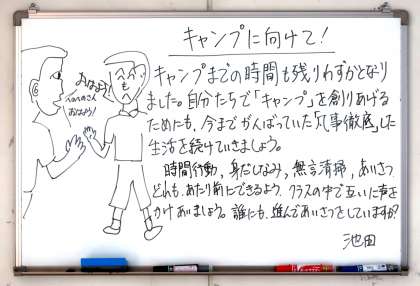 キャンプに向けて!
キャンプまでの時間も残りわずかとなり
ました。自分たちで「キャンプ」を創りあげる
ためにも、今までがんばっていた「凡事徹底」した
生活を続けていきましょう。
時間行動,身だしなみ,無言清掃,あいさつ
どれも、あたり前にできるよう、クラスの中で互いに声を
かけあいましょう。誰にも、進んであいさつをしていますか?
池田
おはよう!
へのへのさん
おはよう!
へのへのもへ